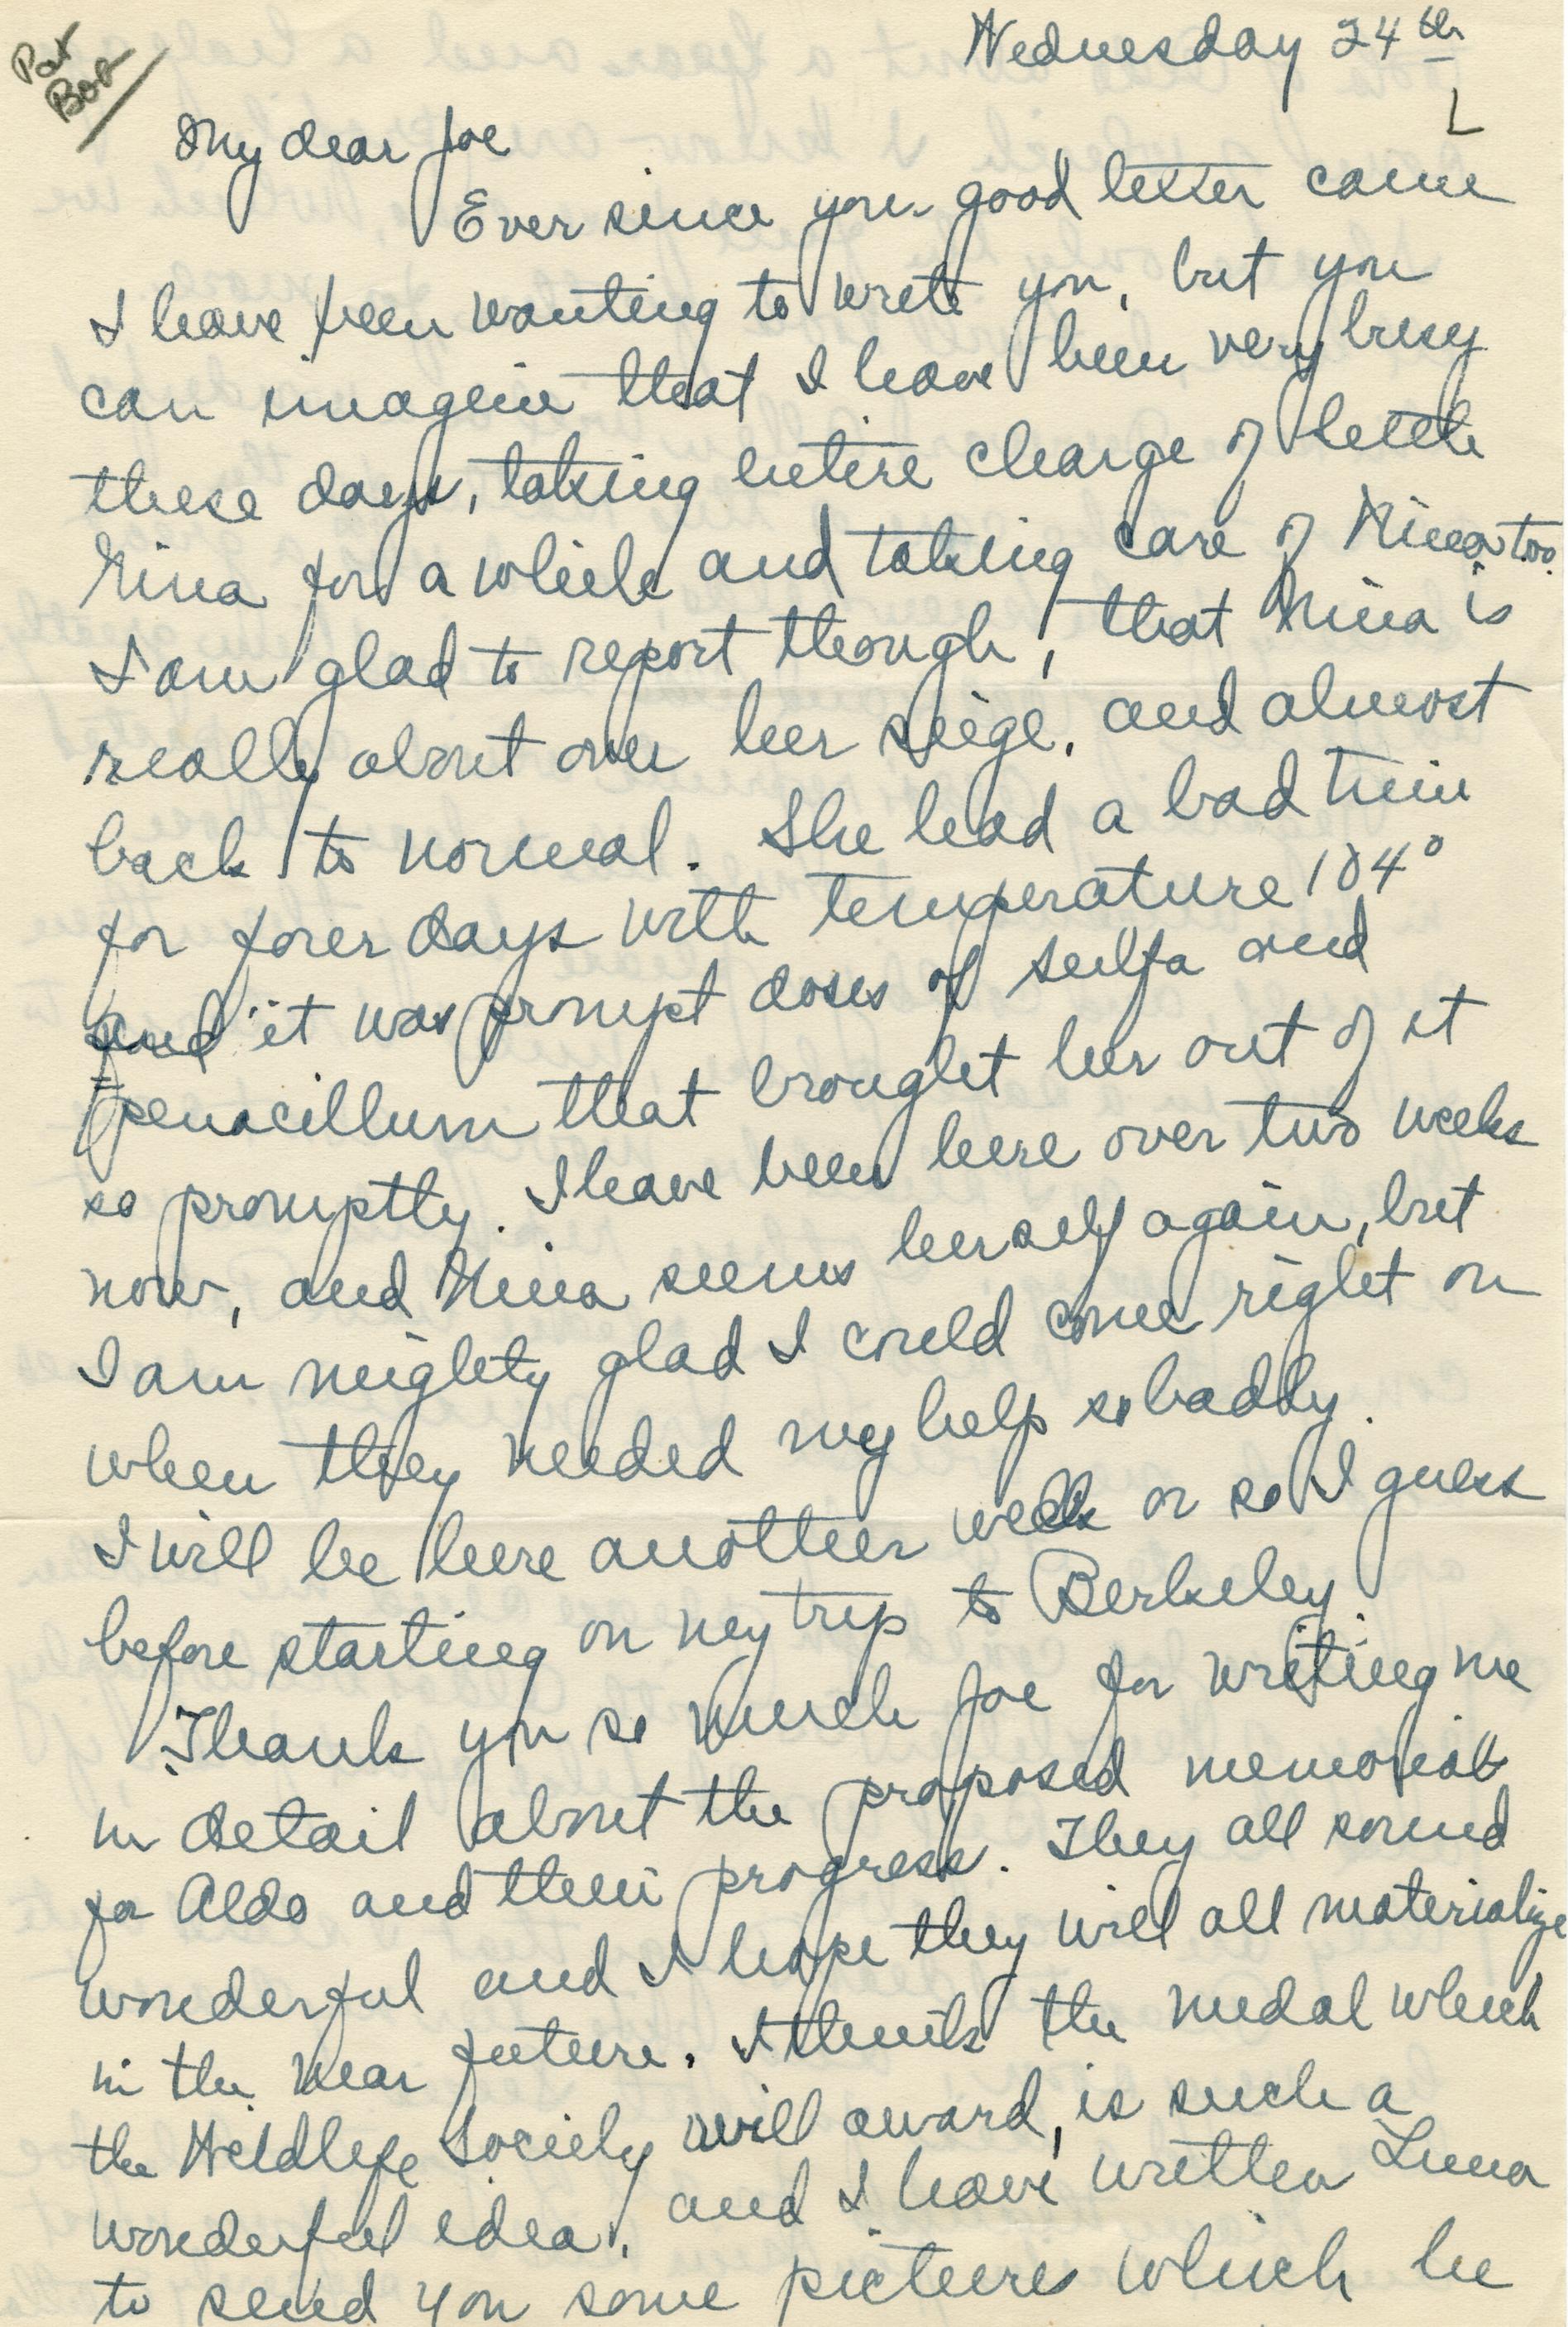 Pat
Bop
Wednesday 24th
L
My dear Joe
Ever since your good letter came
I have been wanting to write you, but you
can imagine that I have been very busy
these days, taking entire charge of little
Nina for a while and taking care of Nina too.
I am glad to report though, that Nina is
really about over her siege, and almost
back to normal. She had a bad time
for four days with temperature 104°
and it was prompt doses of sulfa and
penacillum that brought her out of it
so promptly. I have been here over two weeks
now, and Nina seems herself again, but
I am mighty glad I could come right on
when they needed my help so badly.
I will be here another week or so I guess
before starting on my trip to Berkeley.
Thank you so much Joe for writing me
in detail about the proposed memorials
for Aldo and their progress. They all sound
wonderful and I hope they will all materialize
in the near future. I think the medal which
the Wildlife Society will award, is such a
wonderful idea, and I have written Luna
to send you some pictures which he